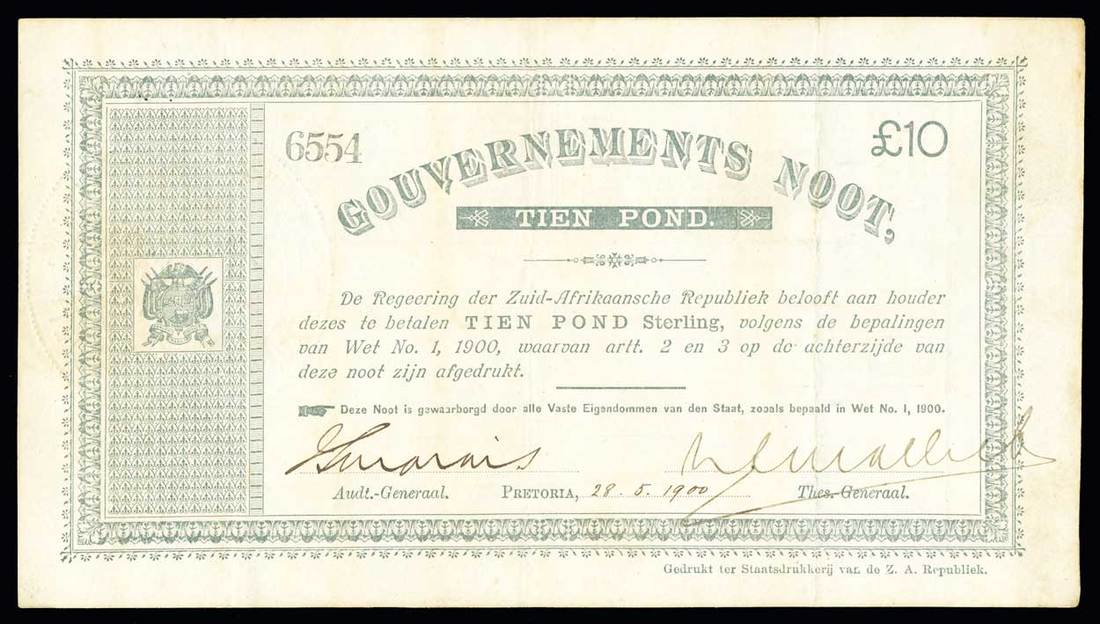 6554
£10
GOUVERNEMENTS NOOT,
TIEN POND.
De Regeering der Zuid-Afrikaansche Republiek belooft aan houder
dezes te betalen TIEN POND Sterling, volgens de bepalingen
van Wet No. 1, 1900, waarvan artt. 2 en 3 op de achterzijde van
deze noot zijn afgedrukt.
Deze Noot is gewaarborgd door alle Vaste Eigendommen van den Staat, zooals bepaald in Wet No. 1, 1900.
Audt.-Generaal. PRETORIA, 28.5.1900 Thes.-Generaal.
Gedrukt ter Staatsdrukkerij van de Z. A. Republiek.